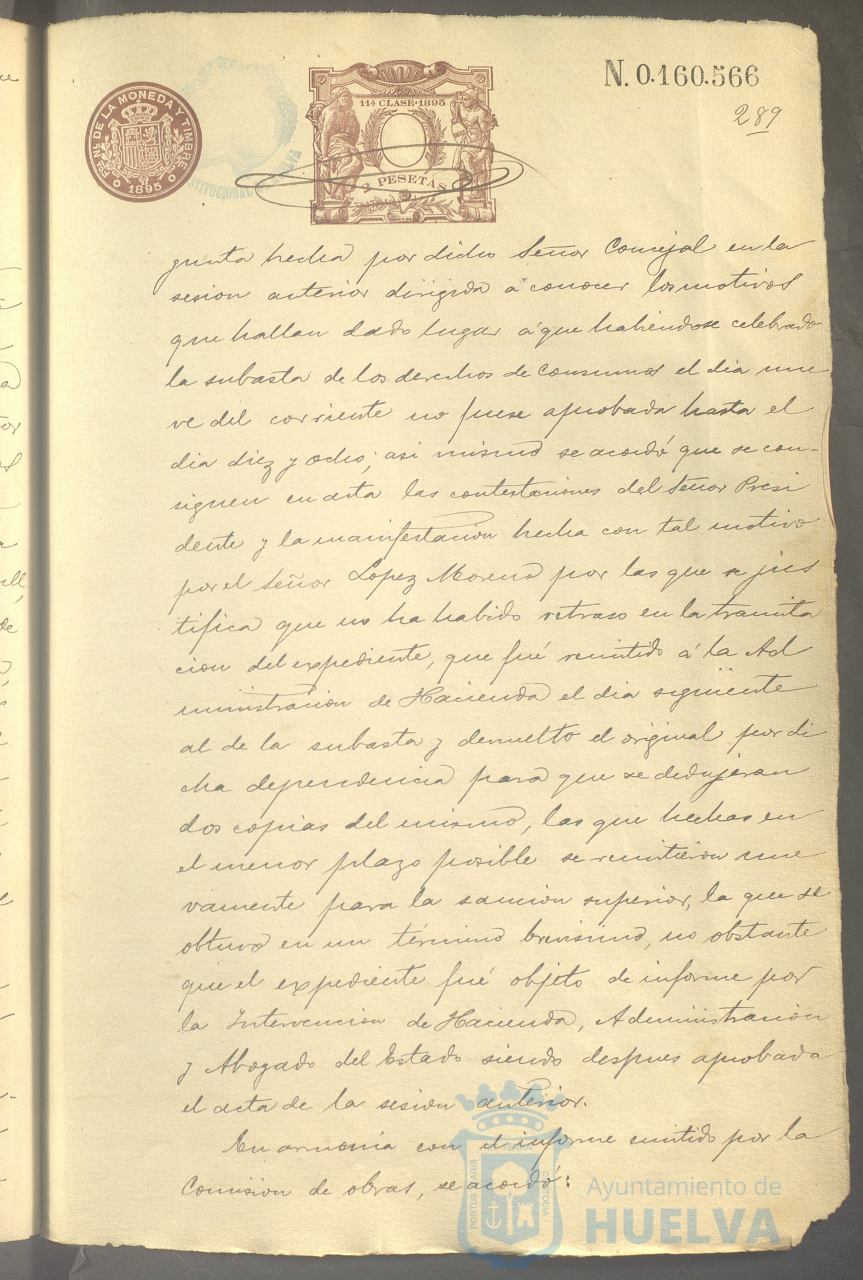 Fca. Nl. DE LA MONEDA Y TIMBRE
1895
STITUCIONAL
11ª CLASE·1895
2 PESETAS
N. 0.160.566
289
gunta hecha por dicho Señor Concejal en la
sesion anterior dirigida á conocer los motivos
que hallan dado lugar á que habiéndose celebrado
la subasta de los derechos de Consumos el dia nue
ve del corriente no fuese aprobada hasta el
dia diez y ocho; asi mismo se acordó que se con-
signen en acta las contestaciones del Señor Presi
dente y la manifestacion hecha con tal motivo
por el Señor Lopez Moreno por las que se jus
tifica que no ha habido retraso en la tramita
cion del expediente, que fué remitido á la Ad
ministracion de Hacienda el dia siguiente
al de la subasta y devuelto el original por di
cha dependencia para que se dedujeran
dos copias del mismo, las que hechas en
el menor plazo posible se remitieron nue
vamente para la sancion superior, la que se
obtuvo en un término brevisimo, no obstante
que el expediente fué objeto de informe por
la Intervencion de Hacienda, Administracion
y Abogado del Estado siendo despues aprobada
el acta de la sesion anterior.
En armonia con el informe emitido por la
Comision de obras, se acordó:
PORTUS MARIS
ET TERRÆ CUSTODIA
Ayuntamiento de
HUELVA